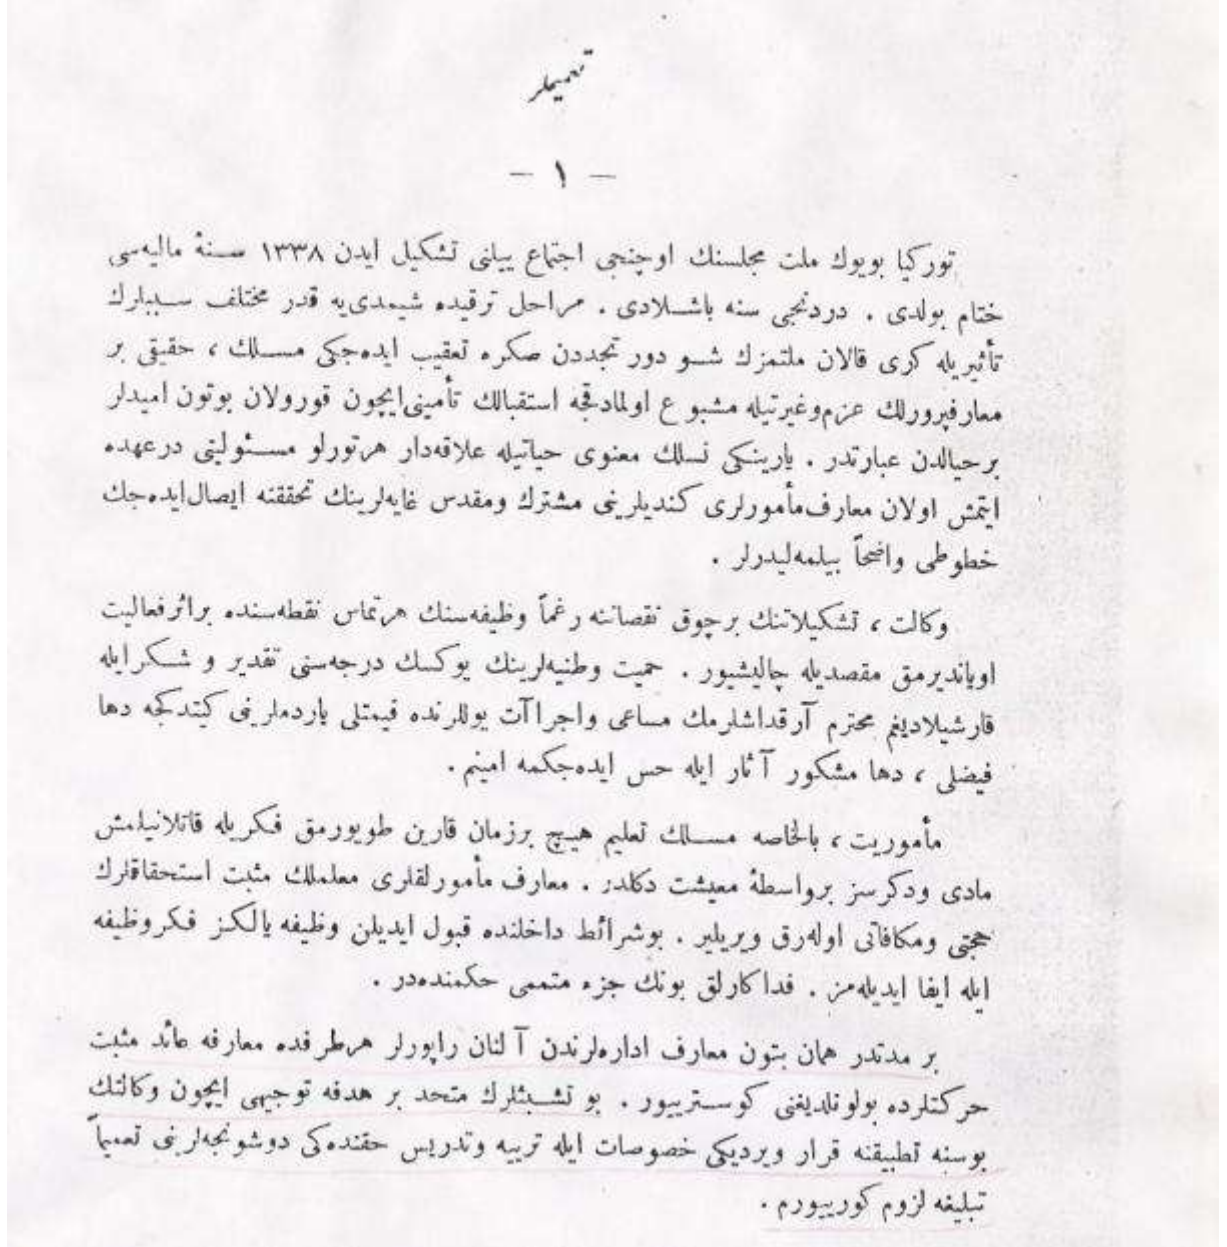 تعميملر
— ١ —
توركيا بويوك ملت مجلسنك اوچنجى اجتماع ييلنى تشكيل ايدن ١٣٣٨ سنۀ ماليه‌سى
ختام بولدى . دردنجى سنه باشلادى . مراحل ترقيده شيمدى‌يه قدر مختلف سببلرك
تأثيريله كرى قالان ملتمزك شو دور تجددن صكره تعقيب ايده‌جكى مسلك ، حقيقى بر
معارفپرورلك عزم‌وغيرتيله مشبوع اولمادقجه استقبالك تأمينى‌ايچون قورولان بوتون اميدلر
برخيالدن عبارتدر . يارينكى نسلك معنوى حياتيله علاقه‌دار هرتورلو مسئوليتى درعهده
ايتمش اولان معارف‌مأمورلرى كنديلرينى مشترك ومقدس غايه‌لرينك تحققنه ايصال‌ايده‌جك
خطوطى واضحاً بيلمه‌ليدرلر .
وكالت ، تشكيلاتنك برچوق نقصاننه رغماً وظيفه‌سنك هرتماس نقطه‌سنده براثرفعاليت
اوياندیرمق مقصديله چاليشيور . حميت وطنيه‌لرينك يوكسك درجه‌سنى تقدير و شكرايله
قارشيلاديغم محترم آرقداشلرمك مساعى واجراآت يوللرنده قيمتلى ياردملرينى كيتدكجه دها
فيضلى ، دها مشكور آثار ايله حس ايده‌جكمه امينم .
مأموريت ، بالخاصه مسلك تعليم هيچ برزمان قارين طويورمق فكريله قاتلانيلمش
مادى ودكرسز برواسطۀ معيشت دكلدر . معارف مأمورلقلرى معلملك مثبت استحقاقلرك
حجتى ومكافاتى اوله‌رق ويريلير . بوشرائط داخلنده قبول ايديلن وظيفه يالكز فكروظيفه
ايله ايفا ايديله‌مز . فداكارلق بونك جزء متممى حكمنده‌در .
بر مدتدر همان بتون معارف اداره‌لرندن آلنان راپورلر هرطرفده معارفه عائد مثبت
حركتلرده بولونلديغنى كوستريیور . بو تشبثلرك متحد بر هدفه توجيهى ايچون وكالتك
بوسنه تطبيقنه قرار ويرديكى خصوصات ايله تربيه وتدريس حقنده‌كى دوشونجه‌لرينى تعميماً
تبليغه لزوم كوريیورم .